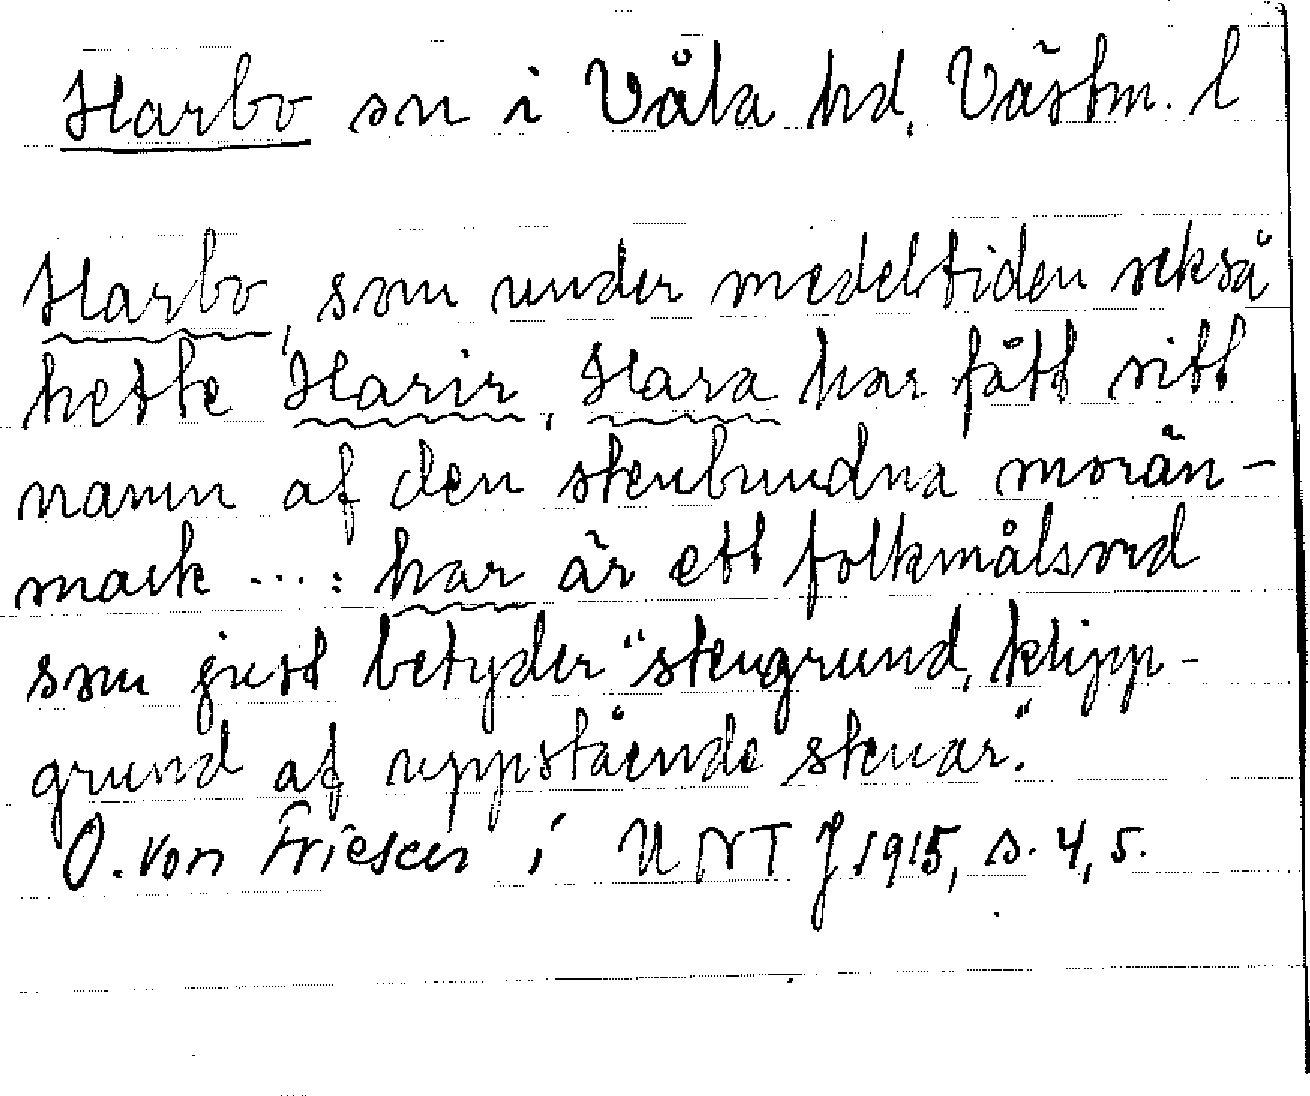 Harbo sn i Våla hd. Västm. l
Harbo, som under medeltiden också
hette Harir, Hara har fått sitt
namn af den stenbundna morän-
mark ...: har är ett folkmålsord
som just betyder "stengrund, klipp-
grund af uppstående stenar."
O. von Friesen i UNT J 1915, s. 4, 5.